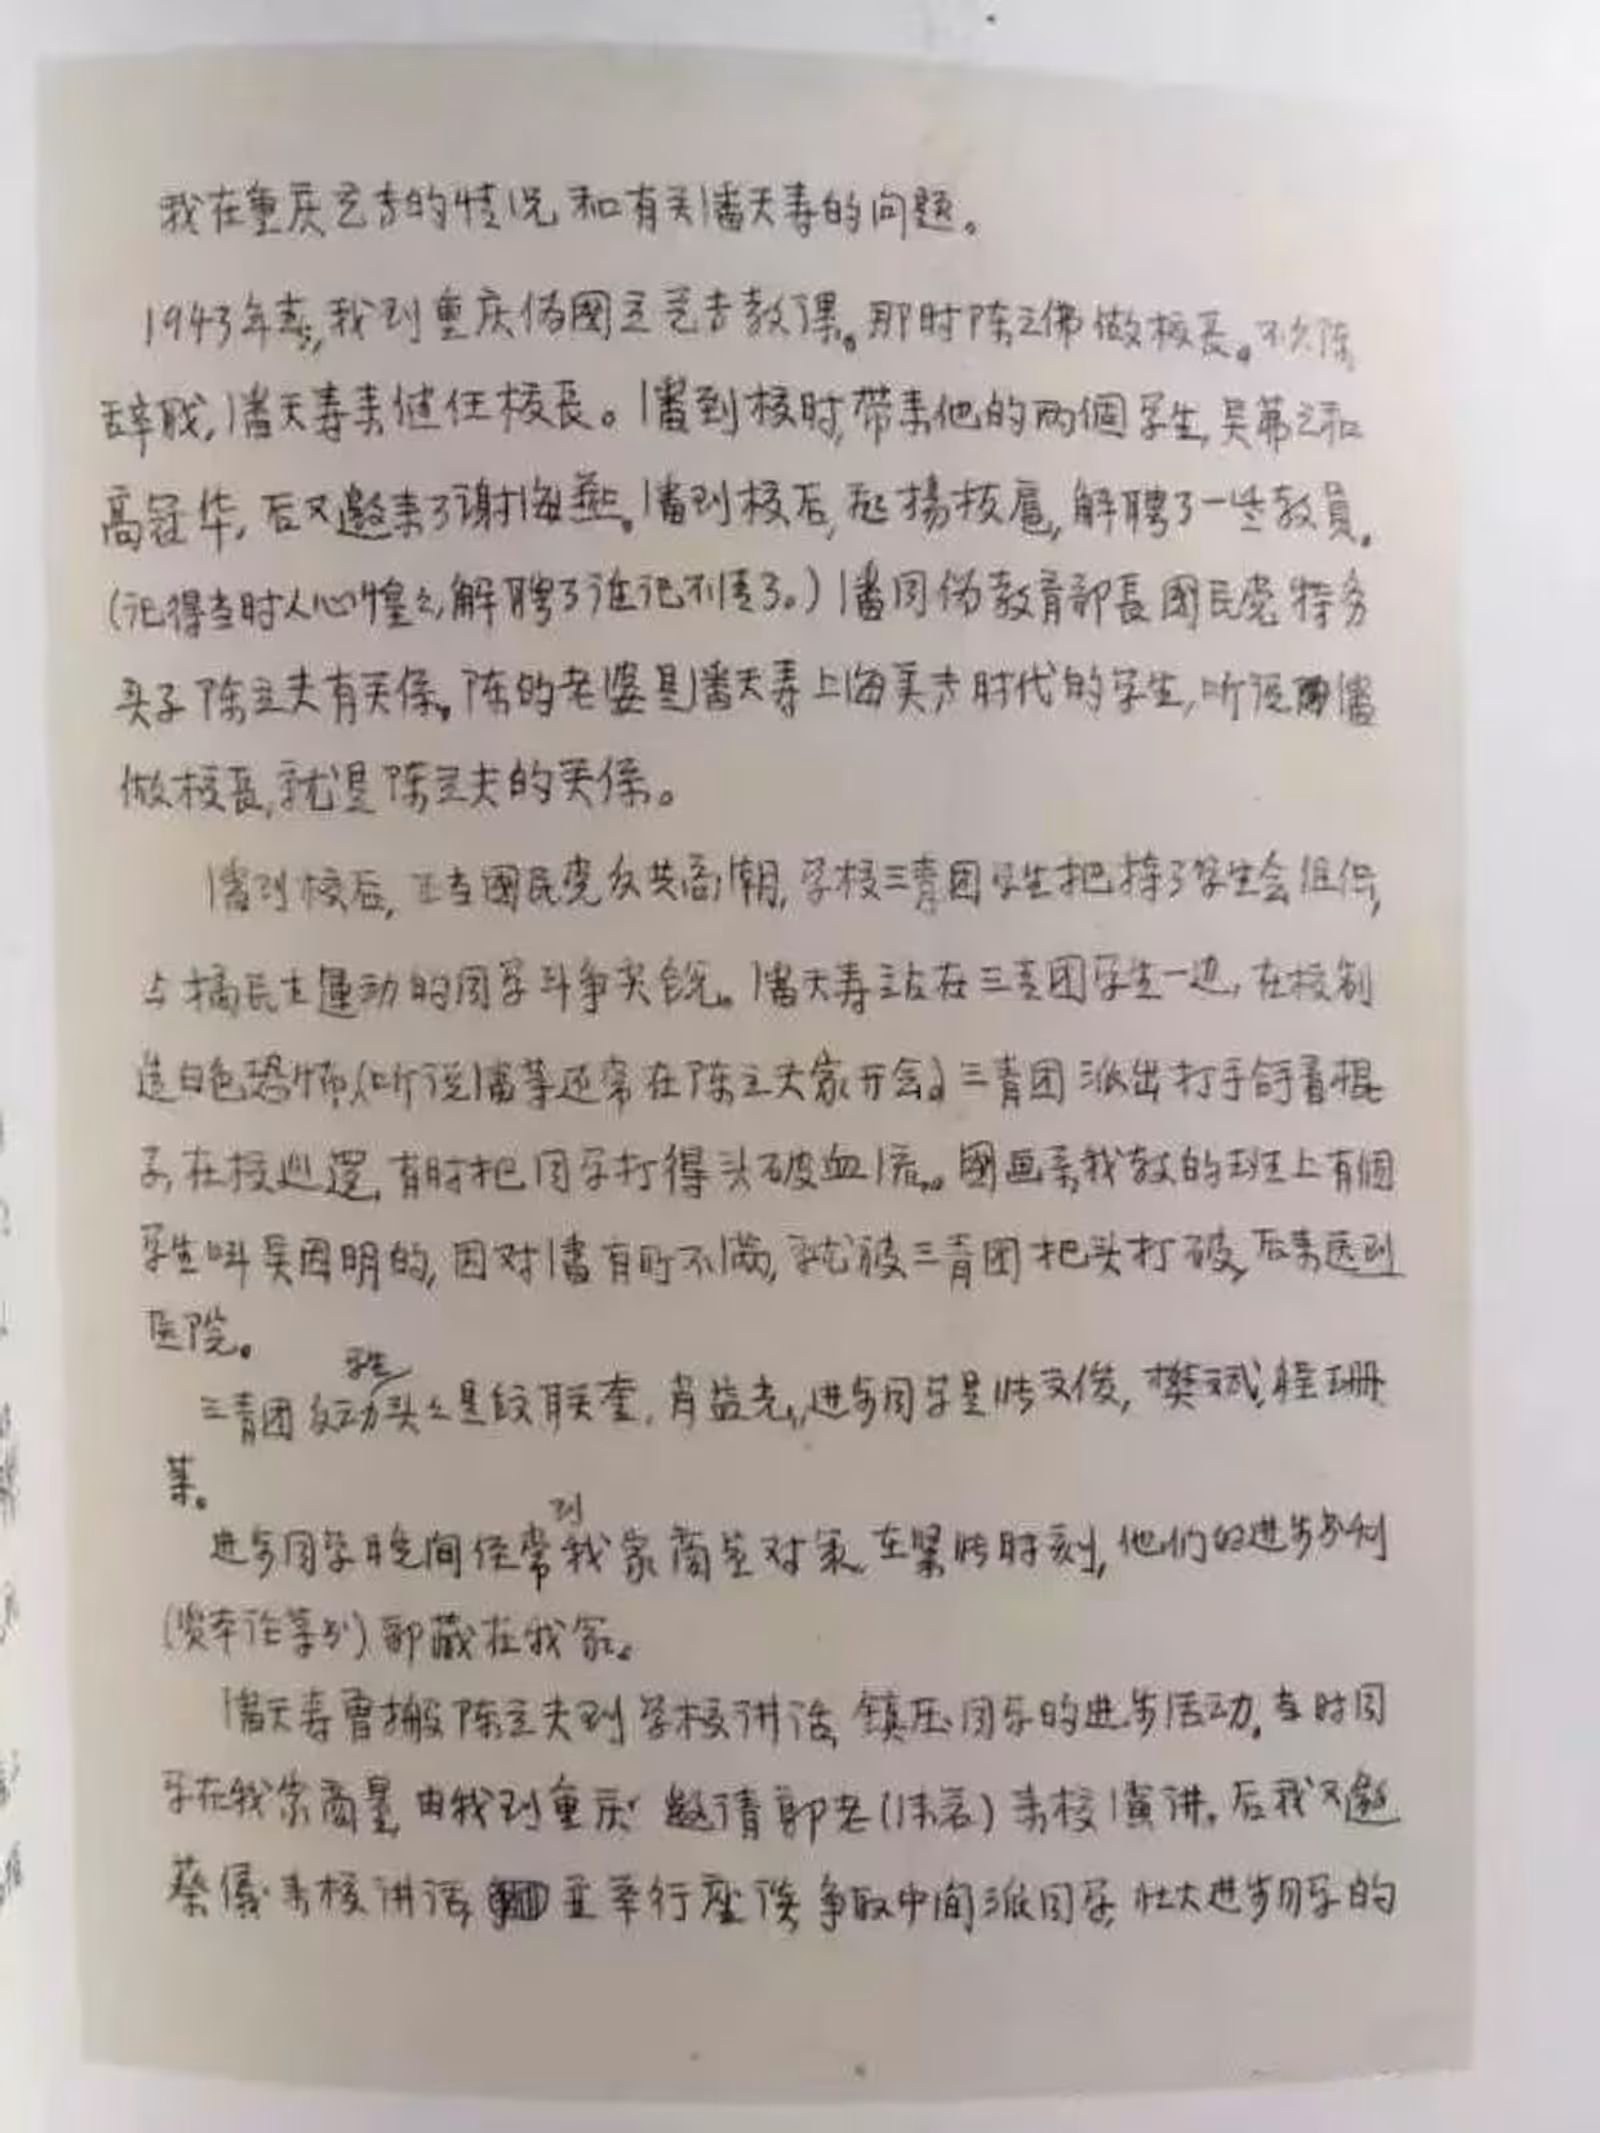 我在重庆艺专的情况和有关潘天寿的问题。
1943年春,我到重庆伪國立艺专教课。那时陈之佛做校長。不久陈
辞职,潘天寿来继任校長。潘到校时,带来他的两個学生,吴茀之和
高冠华,后又邀来了谢海燕。潘到校后,飞揚拔扈,解聘了一些教員。
(记得当时人心惶々,解聘了谁记不清了。)潘同伪教育部長國民党特务
头子陈立夫有关係。陈的老婆是潘天寿上海美专时代的学生,听说潘
做校長,就是陈立夫的关係。
潘到校后,正当國民党反共高潮,学校三青团学生把持了学生会组织,
与搞民主運动的同学斗争尖锐。潘天寿站在三青团学生一边,在校制
造白色恐怖,(听说潘等还常在陈立夫家开会。)三青团派出打手拿着棍
子,在校巡逻,有时把同学打得头破血流。國画系我教的班上有個
学生叫吴因明的,因对潘有所不满,就被三青团把头打破,后来送到
医院。
学生
三青团反动头々是 联奎,肖益光,进步同学是张文俊,樊斌,程珊
等。
到
进步同学晚间经常我家商量对策,在紧张时刻,他们的进步书刊
(资本论等书)都藏在我家。
潘天寿曾搬陈立夫到学校讲话,镇压同学的进步活动。当时同
学在我家商量,由我到重庆邀请郭老(沫若)来校演讲。后我又邀
蔡儀来校讲话,並举行座谈,争取中间派同学,壮大进步同学的